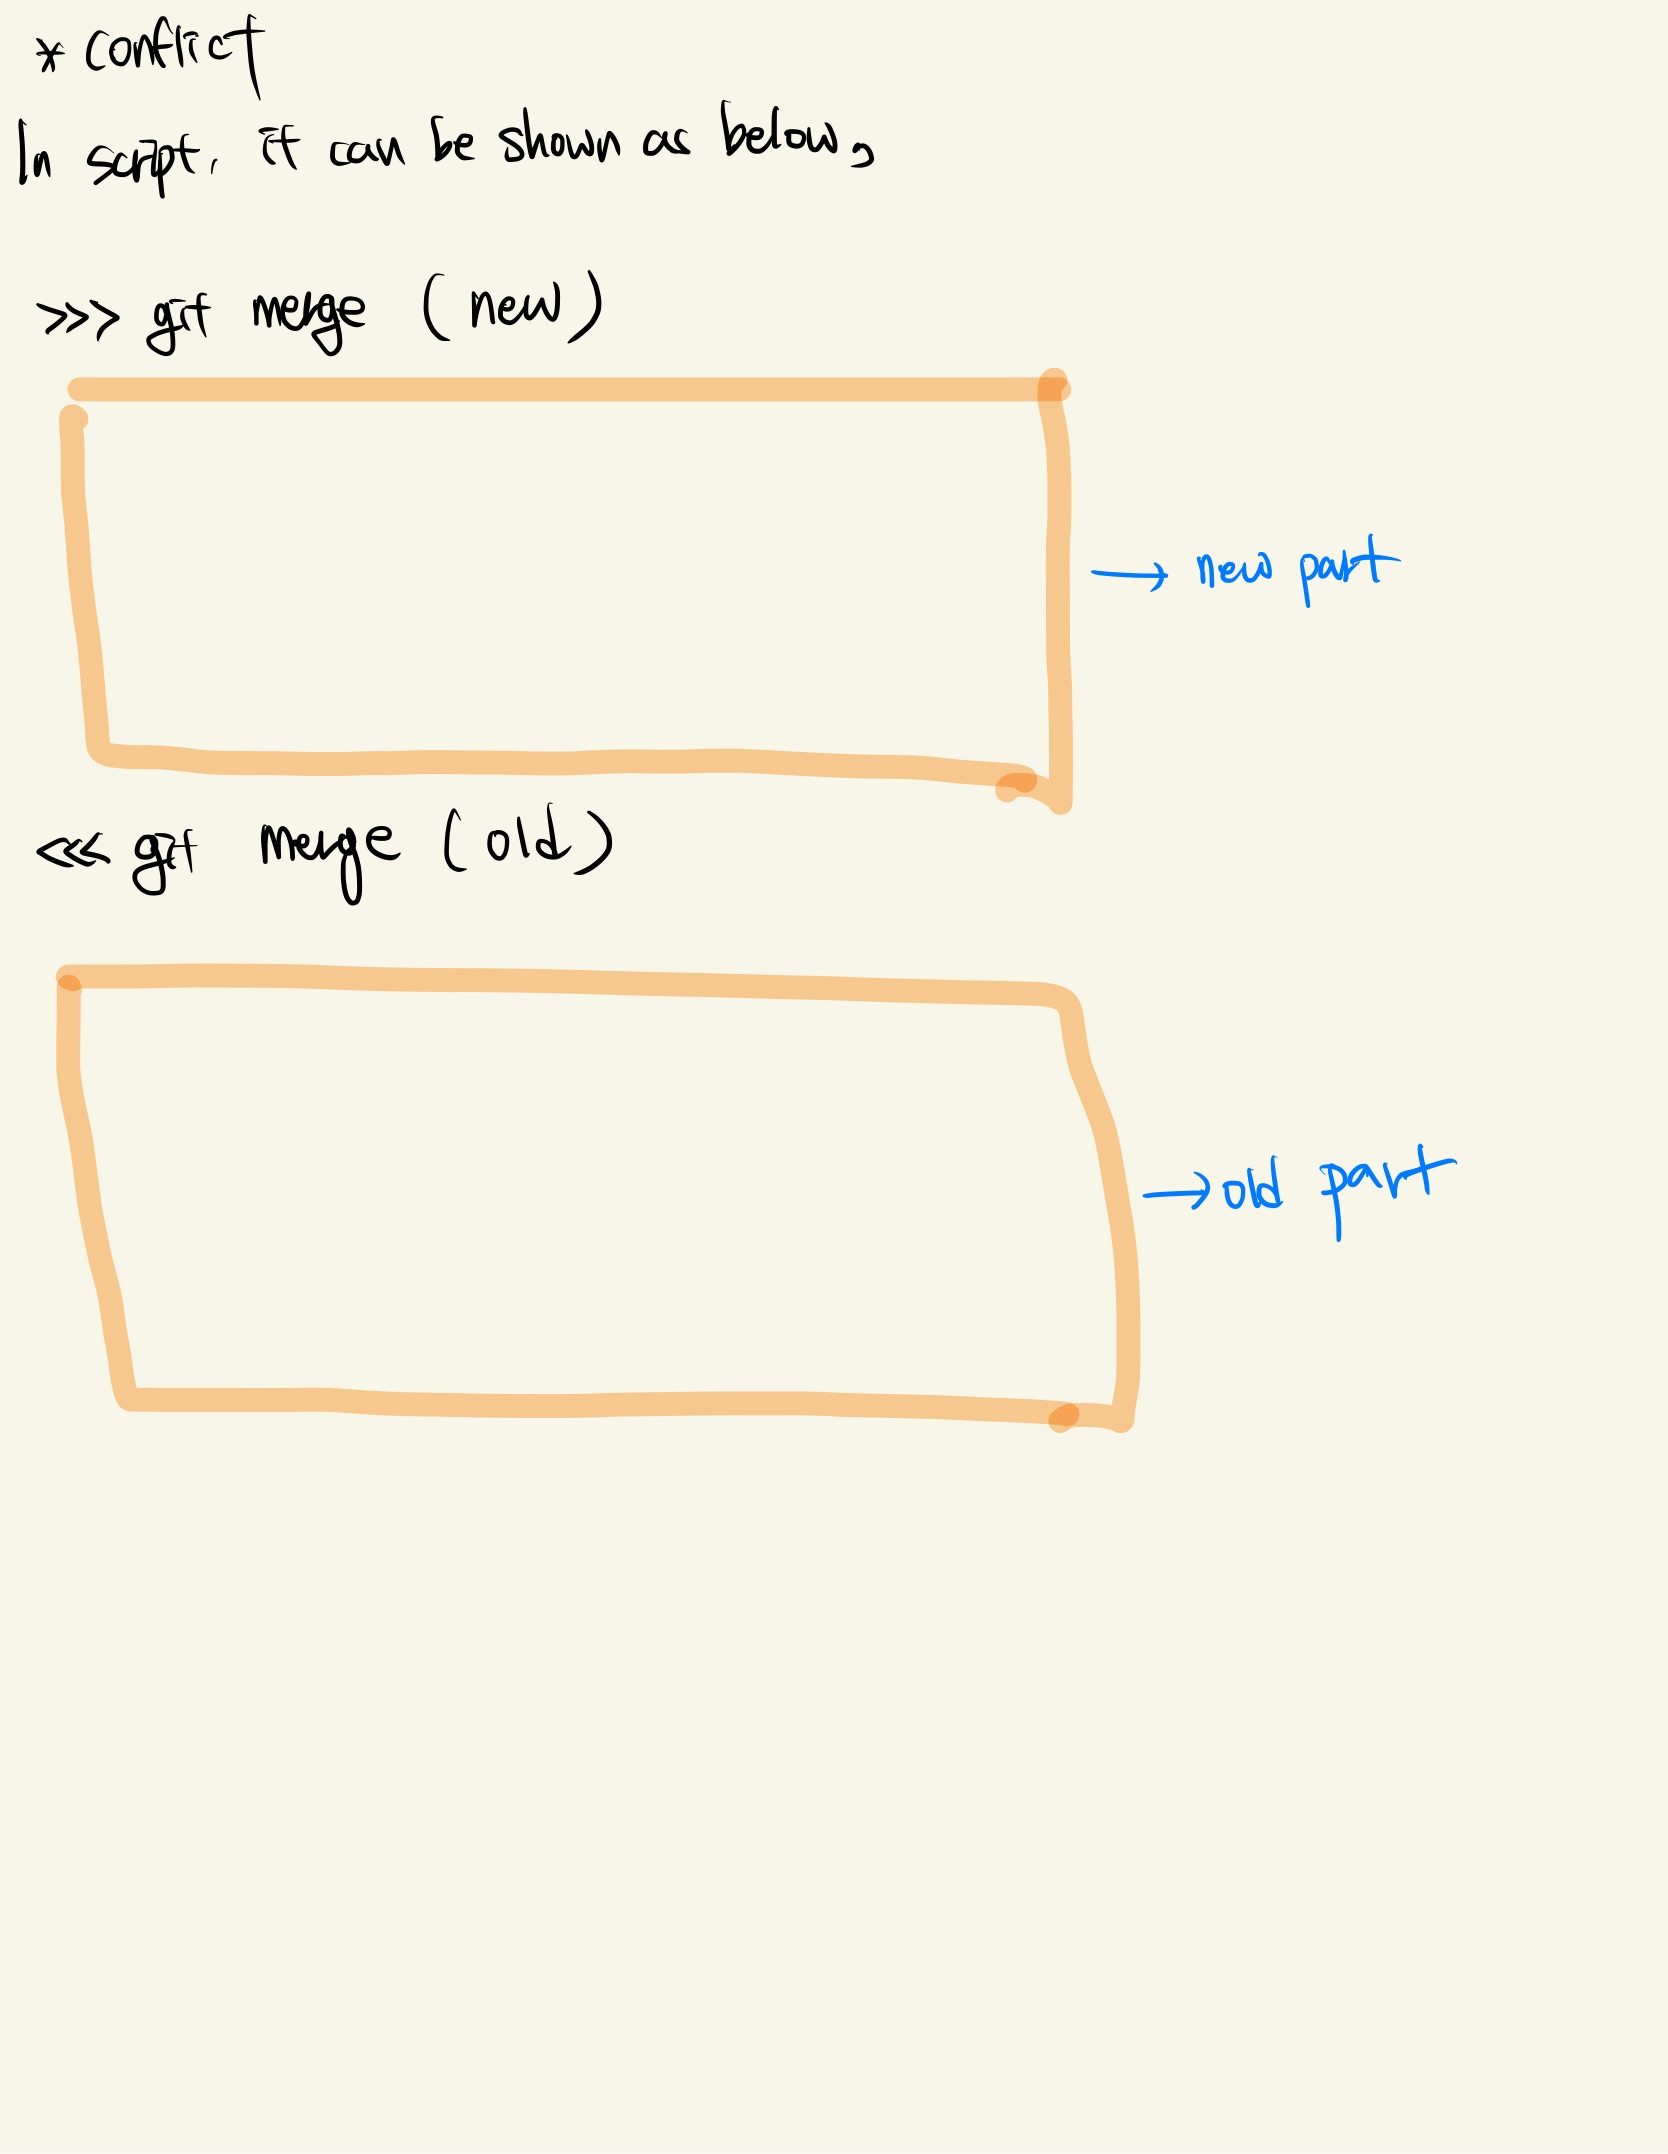 * conflict
In script, it can be shown as below,
>>> git merge (new)
→ new part
<<< git merge (old)
→ old part